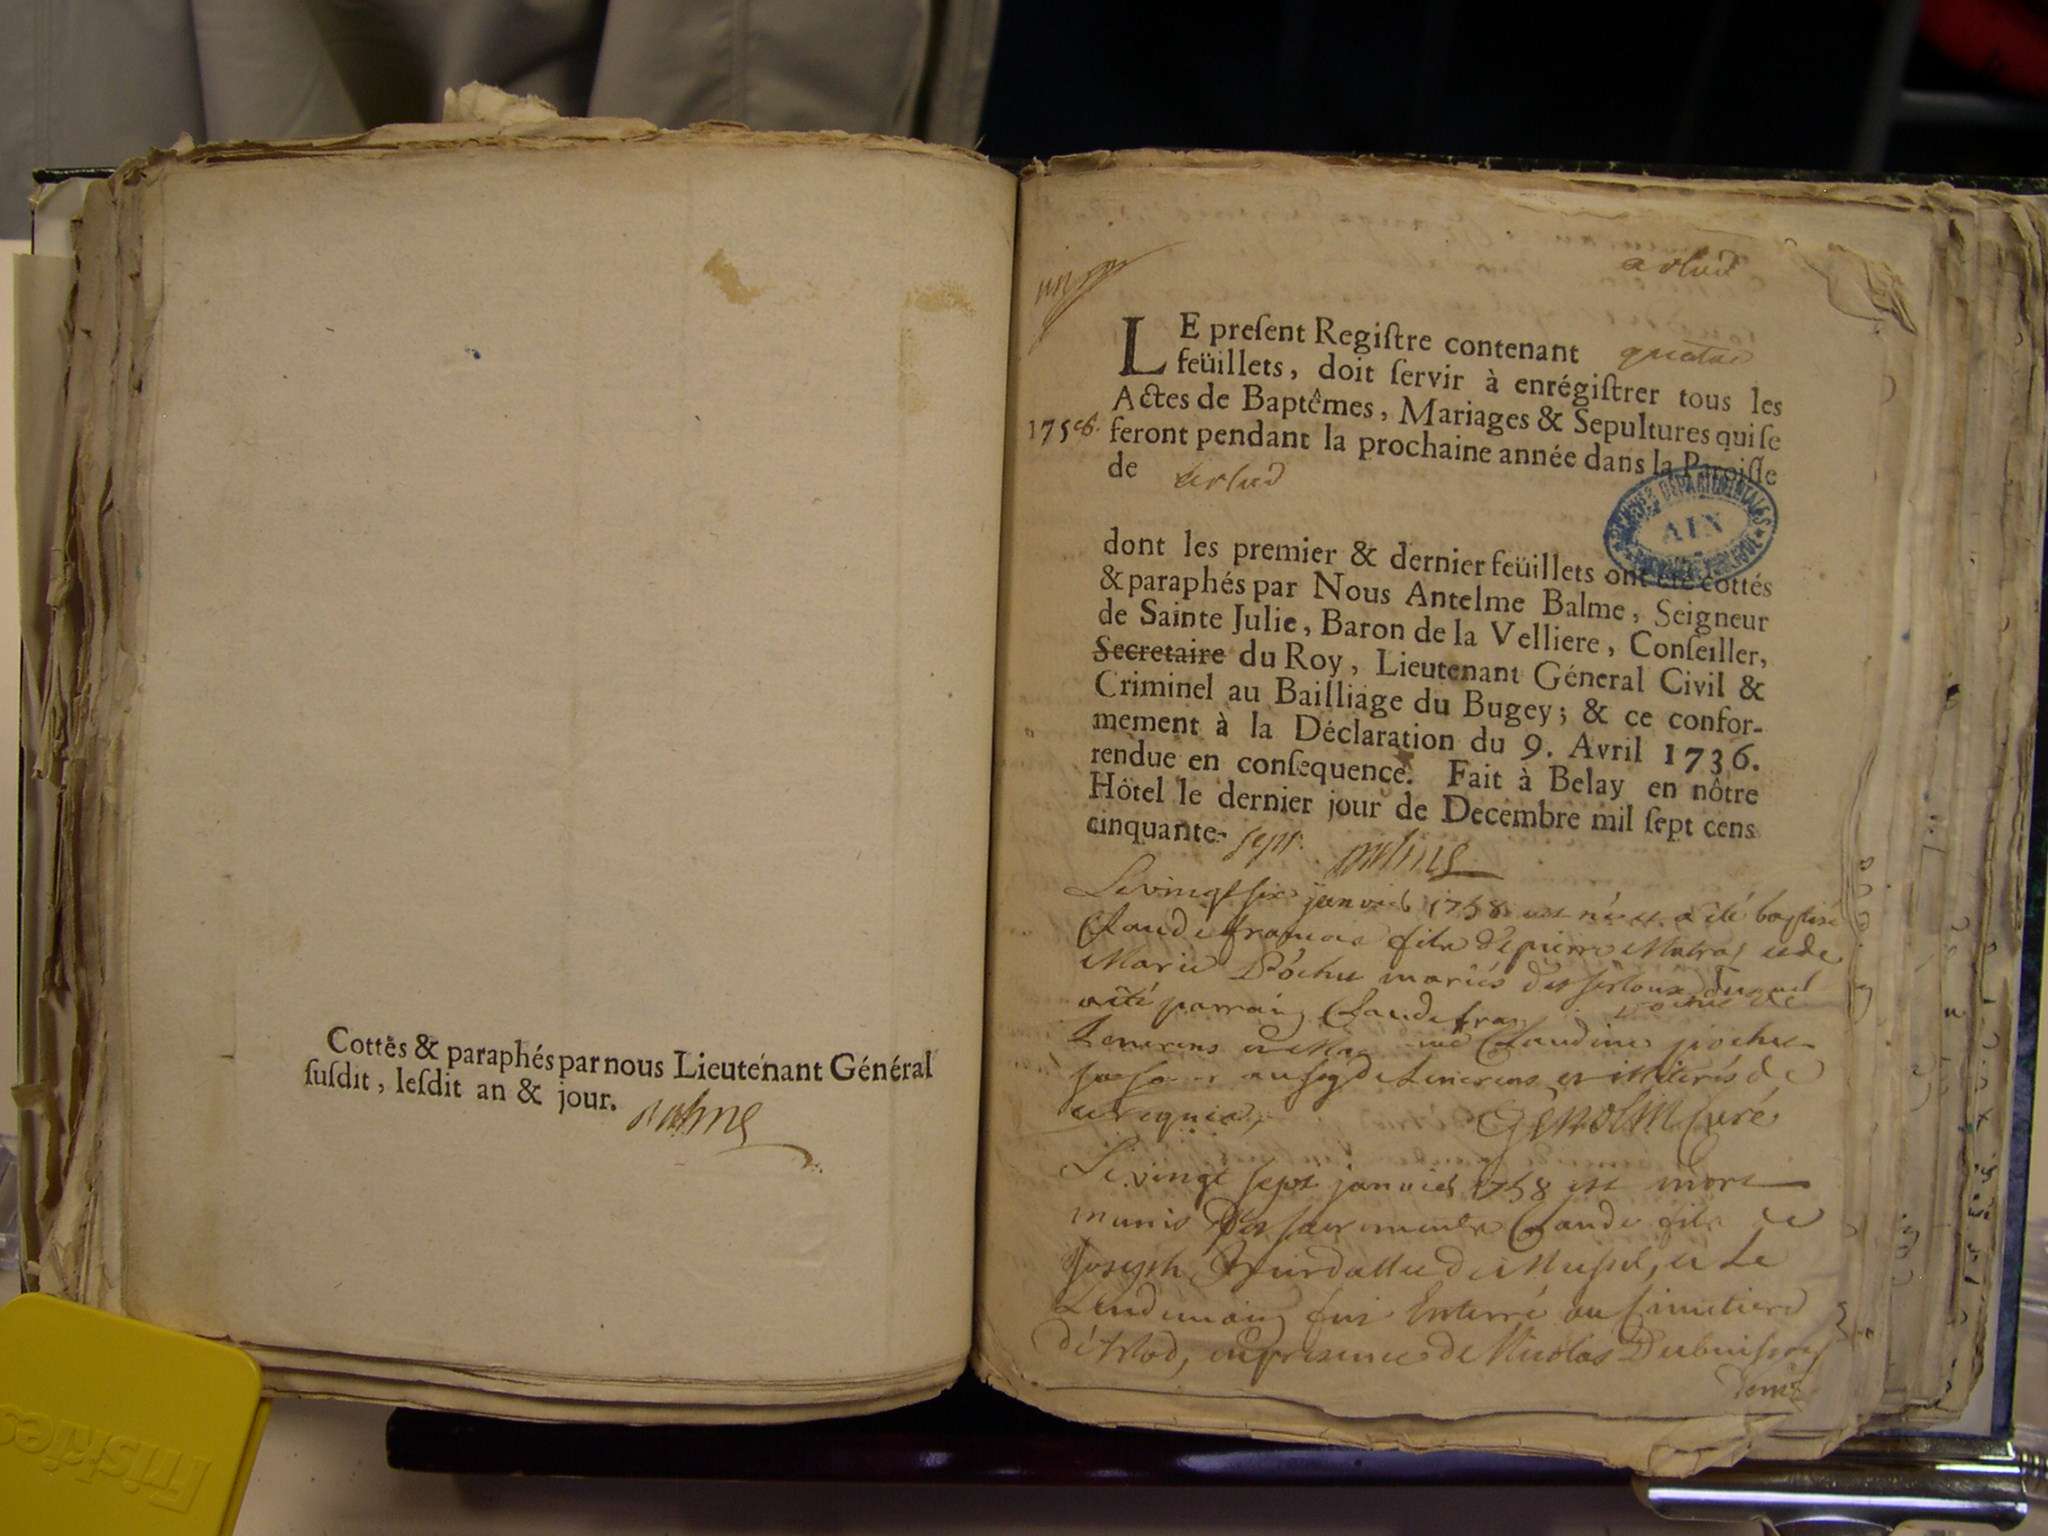 Cottés & paraphés par nous Lieutenant Général
susdit, lesdit an & jour. Balme
arlud
LE present Registre contenant quatre
feüillets, doit servir à enrégistrer tous les
Actes de Baptêmes, Mariages & Sepultures qui se
1758.
feront pendant la prochaine année dans la Paroisse
de arlud
ARCHIVES DEPARTEMENTALES
AIN
dont les premier & dernier feüillets ont été cottés
& paraphés par Nous Antelme Balme, Seigneur
de Sainte Julie, Baron de la Velliere, Conseiller,
Secretaire du Roy, Lieutenant Géneral Civil &
Criminel au Bailliage du Bugey; & ce confor-
mement à la Déclaration du 9. Avril 1736.
rendue en consequence. Fait à Belay en nôtre
Hôtel le dernier jour de Decembre mil sept cens
cinquante- sept. Balme
Le vingt six janvier 1758 est né et a été baptisé
Claude francois fils de pierre Matras et de
Marie Pochu mariés
a été parrain Claude fran
Claudine pochu
et interés de
ce requis, Genolin Curé
Le vingt sept janvier 1758 est mort
munis des sacrements Claude fils de
Joseph de Musel, et Le
Lendemain fut Enterré au Cimetiere
d'Arlod, en presence de Nicolas Dubuisson